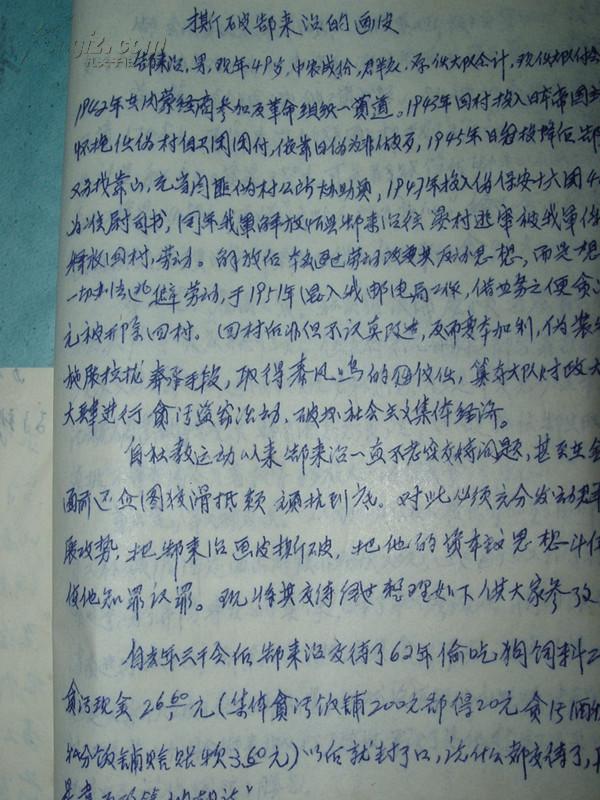 撕破郜来治的画皮
郜来治，男，现年49岁，中农成份，群众，原任大队会计，现任大队付
1942年去内蒙经商参加反革命组织一贯道。1943年回村投入日本帝国主
怀抱任伪村自卫团团付，依靠日伪为非作歹，1945年日寇投降后郜
又寻找靠山，充当阎匪伪村公所协助员，1947年投入伪保安十大团
为准尉司书，同年我军解放 郜来治往晏村逃窜被我军俘
释放回村，劳动。解放后本应通过劳动改变其反动思想，而是想
一切办法逃避劳动，于1951年混入 邮电局工作，借业务之便贪
元被开除回村。回村后非但不认真改造，反而变本加利，伪装
施展拉拢奉承手段，取得春风 的 ，篡夺大队财政大
大肆进行贪污盗窃活动，破坏社会主义集体经济。
自社教运动以来郜来治一直不老实交待问题，甚至
面前还企图狡滑抵赖顽抗到底。对此必须充分发动
展攻势，把郜来治画皮撕破，把他的资本主义思想斗
使他知罪认罪。现将其交待 整理如下供大家参考
自去年三干会后郜来治交待了62年偷吃狗饲料
贪污现金26 元（集体贪污饭铺200元郜得20元贪污
饭铺赔账 3.60元）以后就封了口，说什么都交待了，